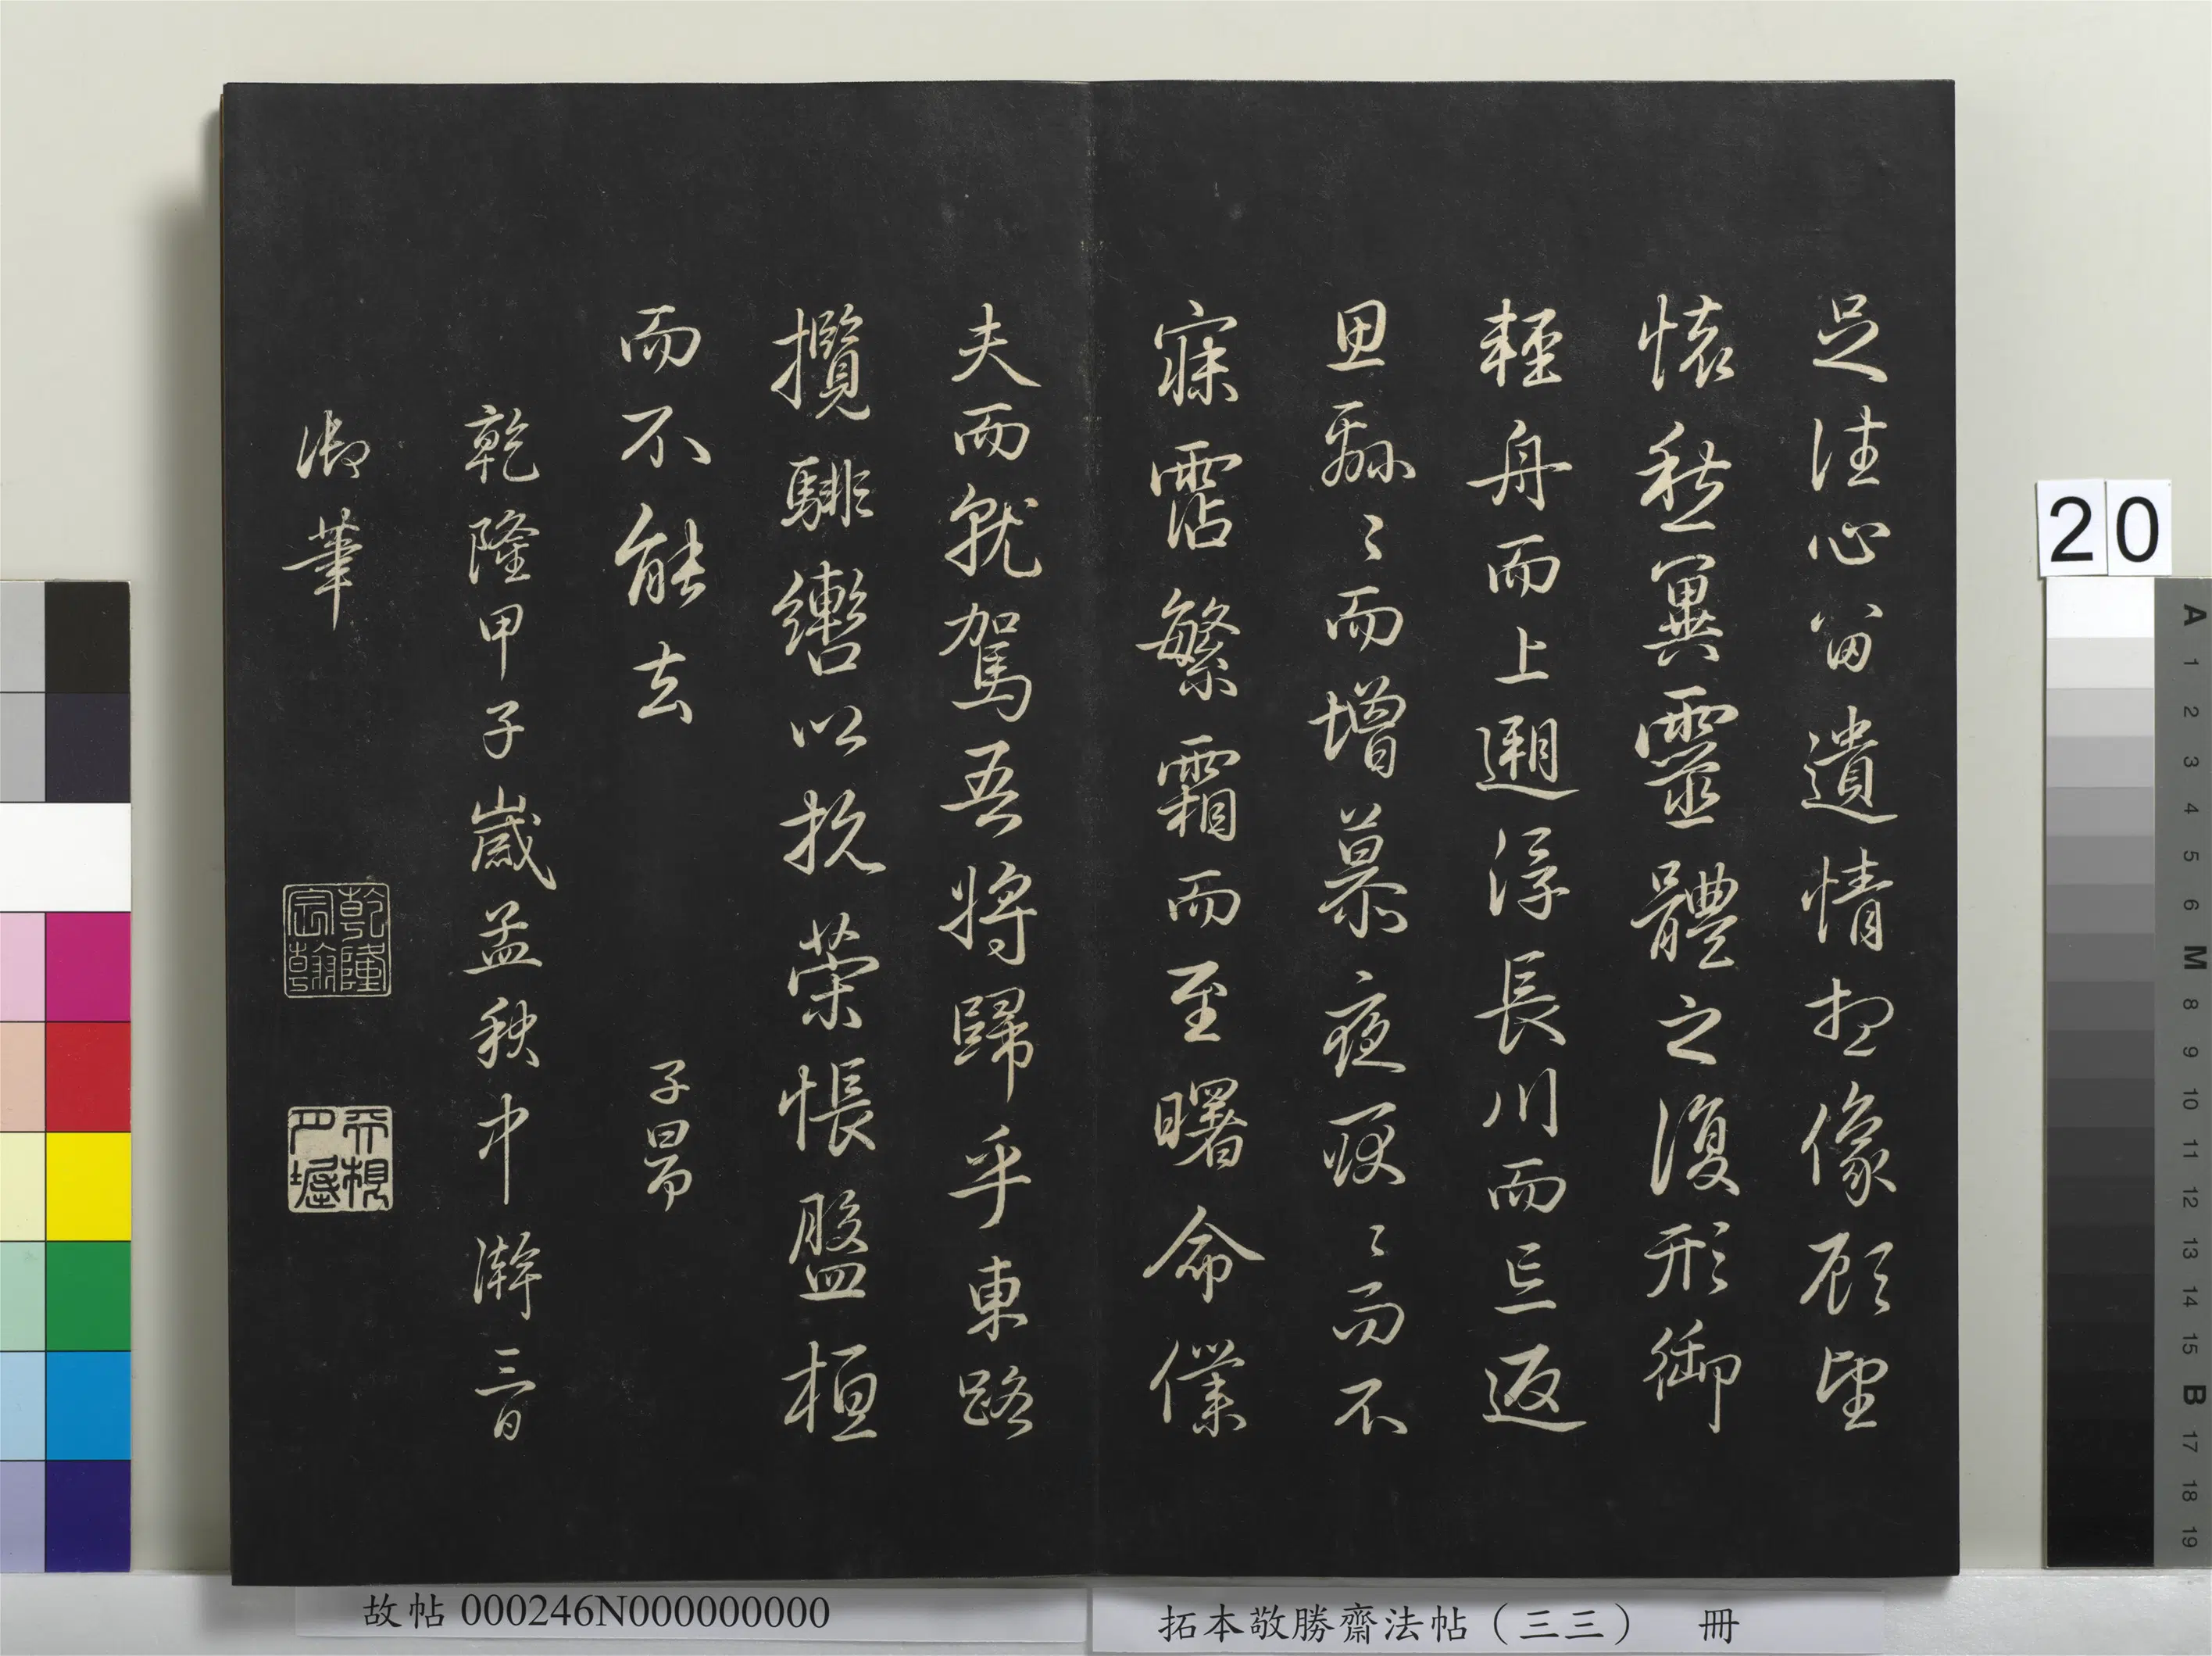 足往心留遺情想像顧望
懷愁冀靈體之復形御
輕舟而上遡浮長川而忘返
思緜〻而增慕夜耿〻而不
寐霑繁霜而至曙命僕
夫而就駕吾將歸乎東路
攬騑轡以抗策悵盤桓
而不能去
子昂
乾隆甲子歲孟秋中澣三日
御筆
乾隆宸翰
20
A 1 2 3 4 5 6 M 8 9 10 11 12 13 14 15 B 17 18 19
故帖 000246N000000000
拓本敬勝齋法帖（三三） 冊